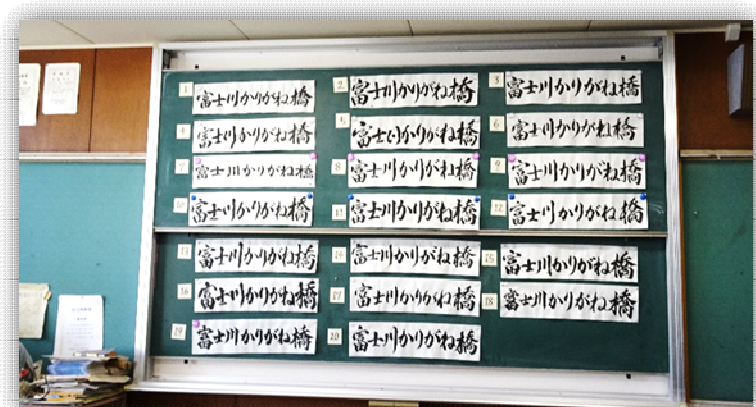 1
富士川かりがね橋
2
富士川かりがね橋
3
富士川かりがね橋
4
富士川かりがね橋
5
富士川かりがね橋
6
富士川かりがね橋
7
富士川かりがね橋
8
富士川かりがね橋
9
富士川かりがね橋
10
富士川かりがね橋
11
富士川かりがね橋
12
富士川かりがね橋
13
富士川かりがね橋
14
富士川かりがね橋
15
富士川かりがね橋
16
富士川かりがね橋
17
富士川かりがね橋
18
富士川かりがね橋
19
富士川かりがね橋
20
富士川かりがね橋